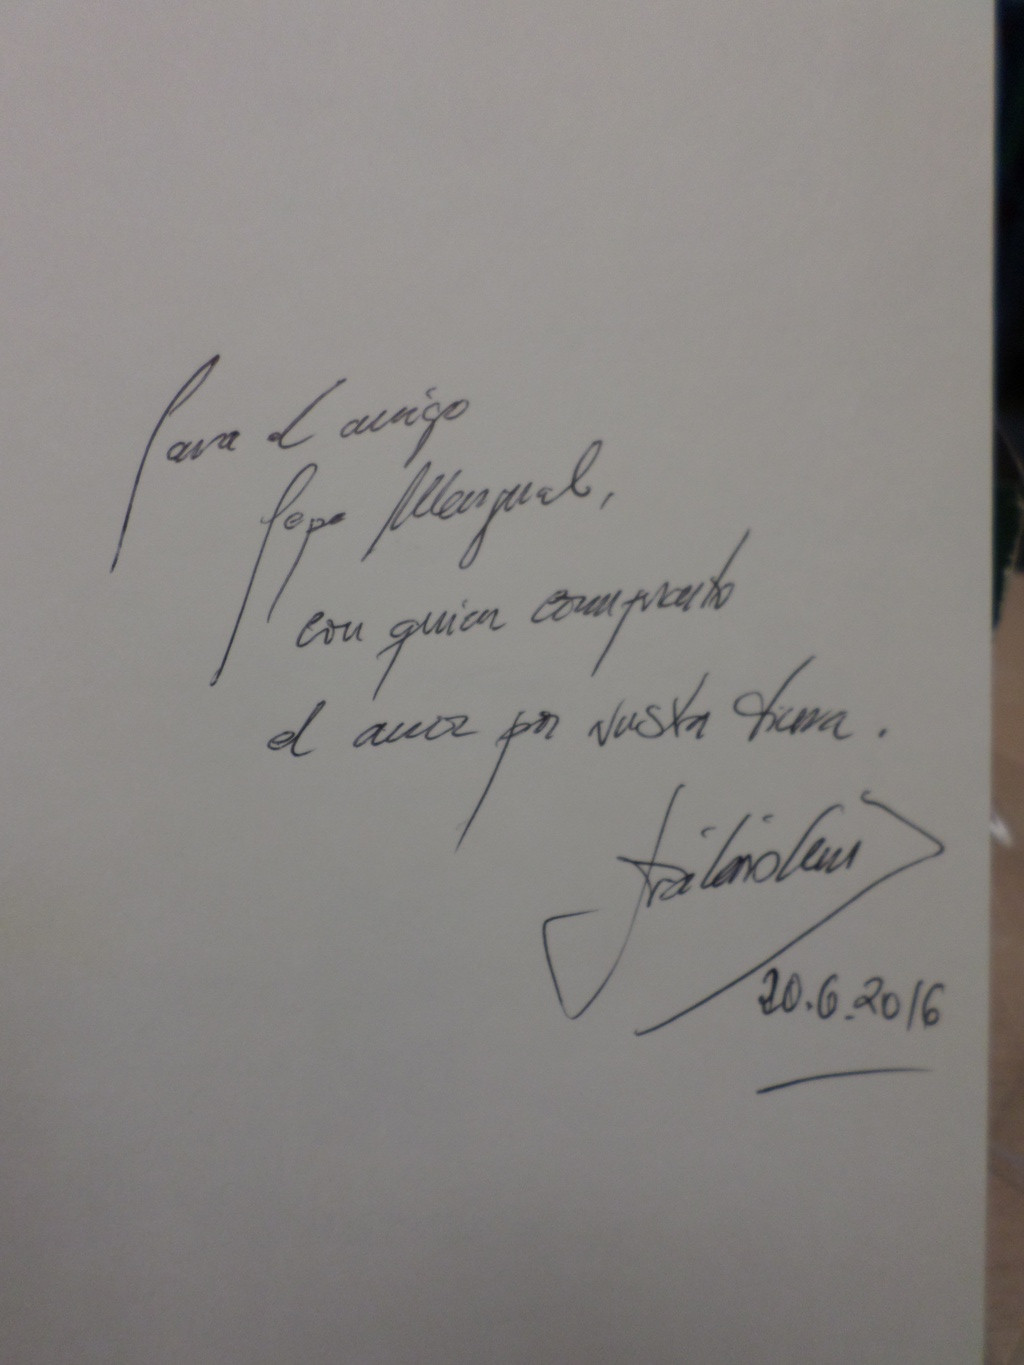 Para el amigo
Pepe
con quien comparto
el amor por nuestra tierra.
20.6.2016